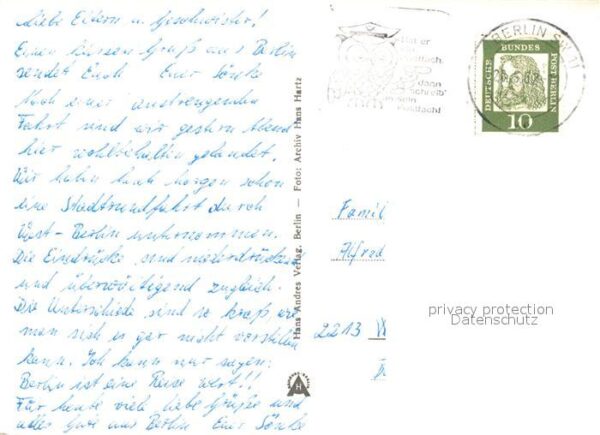 Liebe Eltern u. Geschwister!
Einen kurzen Gruß aus Berlin
sendet Euch Euer Sönke
Nach einer anstrengenden
Fahrt sind wir gestern Abend
hier wohlbehalten gelandet.
Wir haben heute Morgen schon
eine Stadtrundfahrt durch
West-Berlin unternommen.
Die Eindrücke sind niederdrückend
und überwältigend zugleich.
Die Unterschiede sind so kraß wie
man sich es gar nicht vorstellen
kann. Ich kann nur sagen:
Berlin ist eine Reise wert!!
Für heute viele liebe Grüße und
alles Gute aus Berlin Euer Sönke
Hans Andres Verlag, Berlin — Foto: Archiv Hans Hartz
Hat er
dann
schreib'
sein
Postfach!
BERLIN SW 11
DEUTSCHE BUNDESPOST BERLIN
10
Famil
Alfred
2213 W
privacy protection
Datenschutz